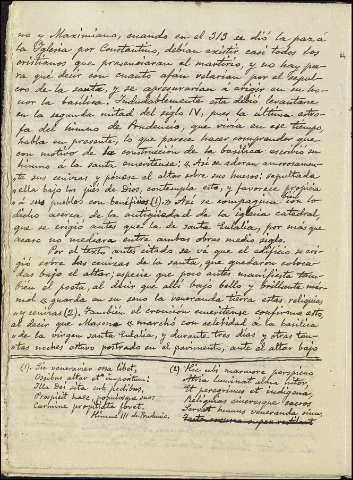 no y Maximiano, cuando en el 313 se dió la paz á
la Iglesia por Constantino, debian existir casi todos los
cristianos que presenciaran el martirio, y no hay pa-
ra qué decir con cuanto afán velarian por el sepul-
cro de la santa, y se apresurarian a erigir en su ho-
nor la basílica. Indudablemente esta debió levantarse
en la segunda mitad del siglo IV, pues la última estro-
fa del himno de Prudencio, que vivia en ese tiempo,
habla en presente, lo que parece hacer comprender que
con motivo de la construcción de la basílica escribió su
himno á la santa emeritense: "Asi se adoran amorosamen-
te sus cenizas y pónese el altar sobre sus huesos: sepultada
ella bajo los piés de Dios, contempla esto, y favorece propicia
á sus pueblos con (1)." Asi se compagina con lo
dicho acerca de la antigüedad de la iglesia catedral,
que se erigió antes que la de santa Eulalia, por más que
acaso no mediara entre ambas obras medio siglo.
Por el texto antes citado se vé que el edificio se eri-
gió sobre las cenizas de la santa, que quedaron coloca-
das bajo el altar; especie que poco antes manifiesta tam-
bien el poeta, al decir que allí bajo bello y brillante már-
mol "guarda en su seno la veneranda tierra estas reliquias
y cenizas (2). Tambien el cronicón emeritense confirma esto,
al decir que Masona "marchó con celeridad á la basílica
de la virgen santa Eulalia, y durante tres dias y otras tan-
tas noches estuvo postrado en el pavimento, ante el altar bajo
(1). Sic venerarier ossa libet,
Ossibus altar et impositum:
Illa Dei sita sub pedibus,
Prospicit haec, populosque suos
Carmine propitiata fovet.
Himno III de Prudencio.
(2) Hic ubi marmore perspicuo
Atria luminat alma nitor,
Et peregrinus et indigena,
Reliquias cineresque sacros
Servat humus veneranda sinu.
Tecta corusca super rutilant